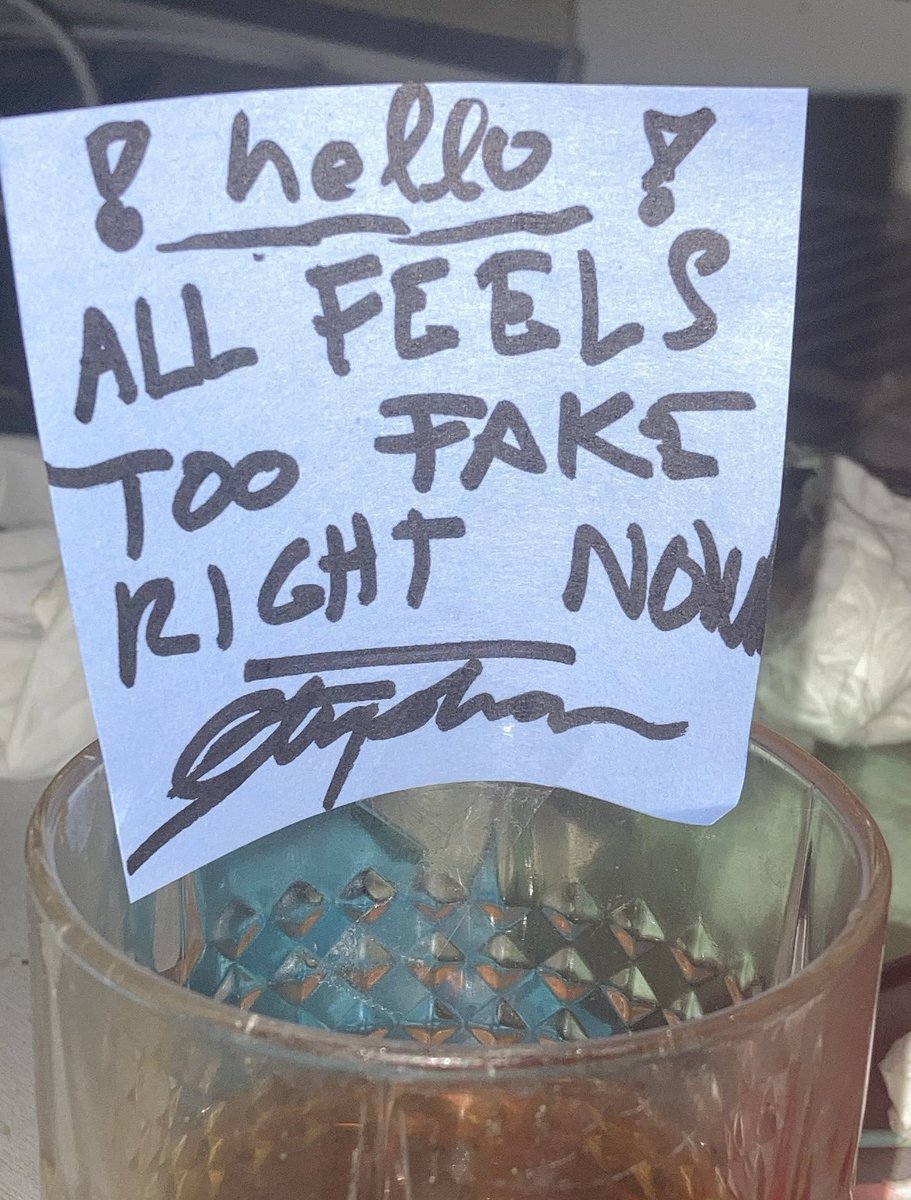 ! hello !
ALL FEELS
TOO FAKE
RIGHT NOW
Stephan